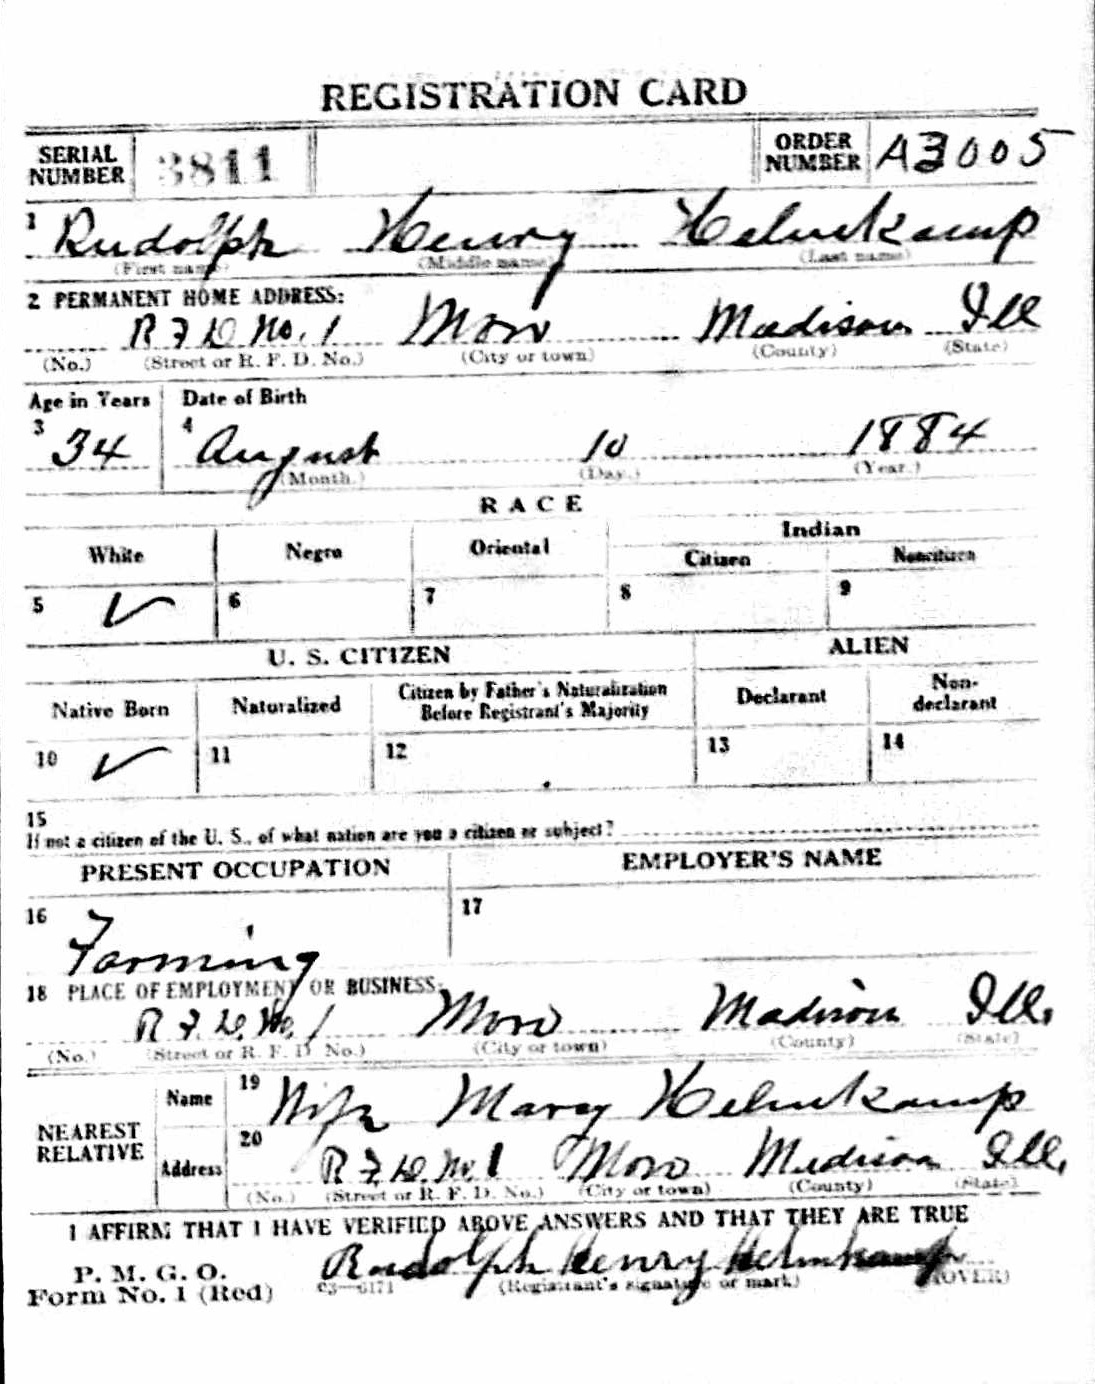 REGISTRATION CARD
SERIAL NUMBER 3811 ORDER NUMBER A3005
1 Rudolph Henry Helmkamp
(First name) (Middle name) (Last name)
2 PERMANENT HOME ADDRESS:
R F D No. 1 Moro Madison Ill
(No.) (Street or R. F. D. No.) (City or town) (County) (State)
Age in Years Date of Birth
3 34 4 August 10 1884
(Month.) (Day.) (Year.)
RACE
White Negro Oriental Indian
Citizen Noncitizen
5 ✓ 6 7 8 9
U. S. CITIZEN ALIEN
Native Born Naturalized Citizen by Father's Naturalization Before Registrant's Majority Declarant Non-declarant
10 ✓ 11 12 13 14
15
If not a citizen of the U. S., of what nation are you a citizen or subject?
PRESENT OCCUPATION EMPLOYER'S NAME
16 Farming 17
18 PLACE OF EMPLOYMENT OR BUSINESS:
R. F. D. No. 1 Moro Madison Ill.
(No.) (Street or R. F. D. No.) (City or town) (County) (State)
NEAREST RELATIVE
Name 19 Wife Mary Helmkamp
Address 20 R. F. D. No. 1 Moro Madison Ill.
(No.) (Street or R. F. D. No.) (City or town) (County) (State)
I AFFIRM THAT I HAVE VERIFIED ABOVE ANSWERS AND THAT THEY ARE TRUE
P. M. G. O.
Form No. 1 (Red) 03—6171 Rudolph Henry Helmkamp
(Registrant's signature or mark) (OVER)